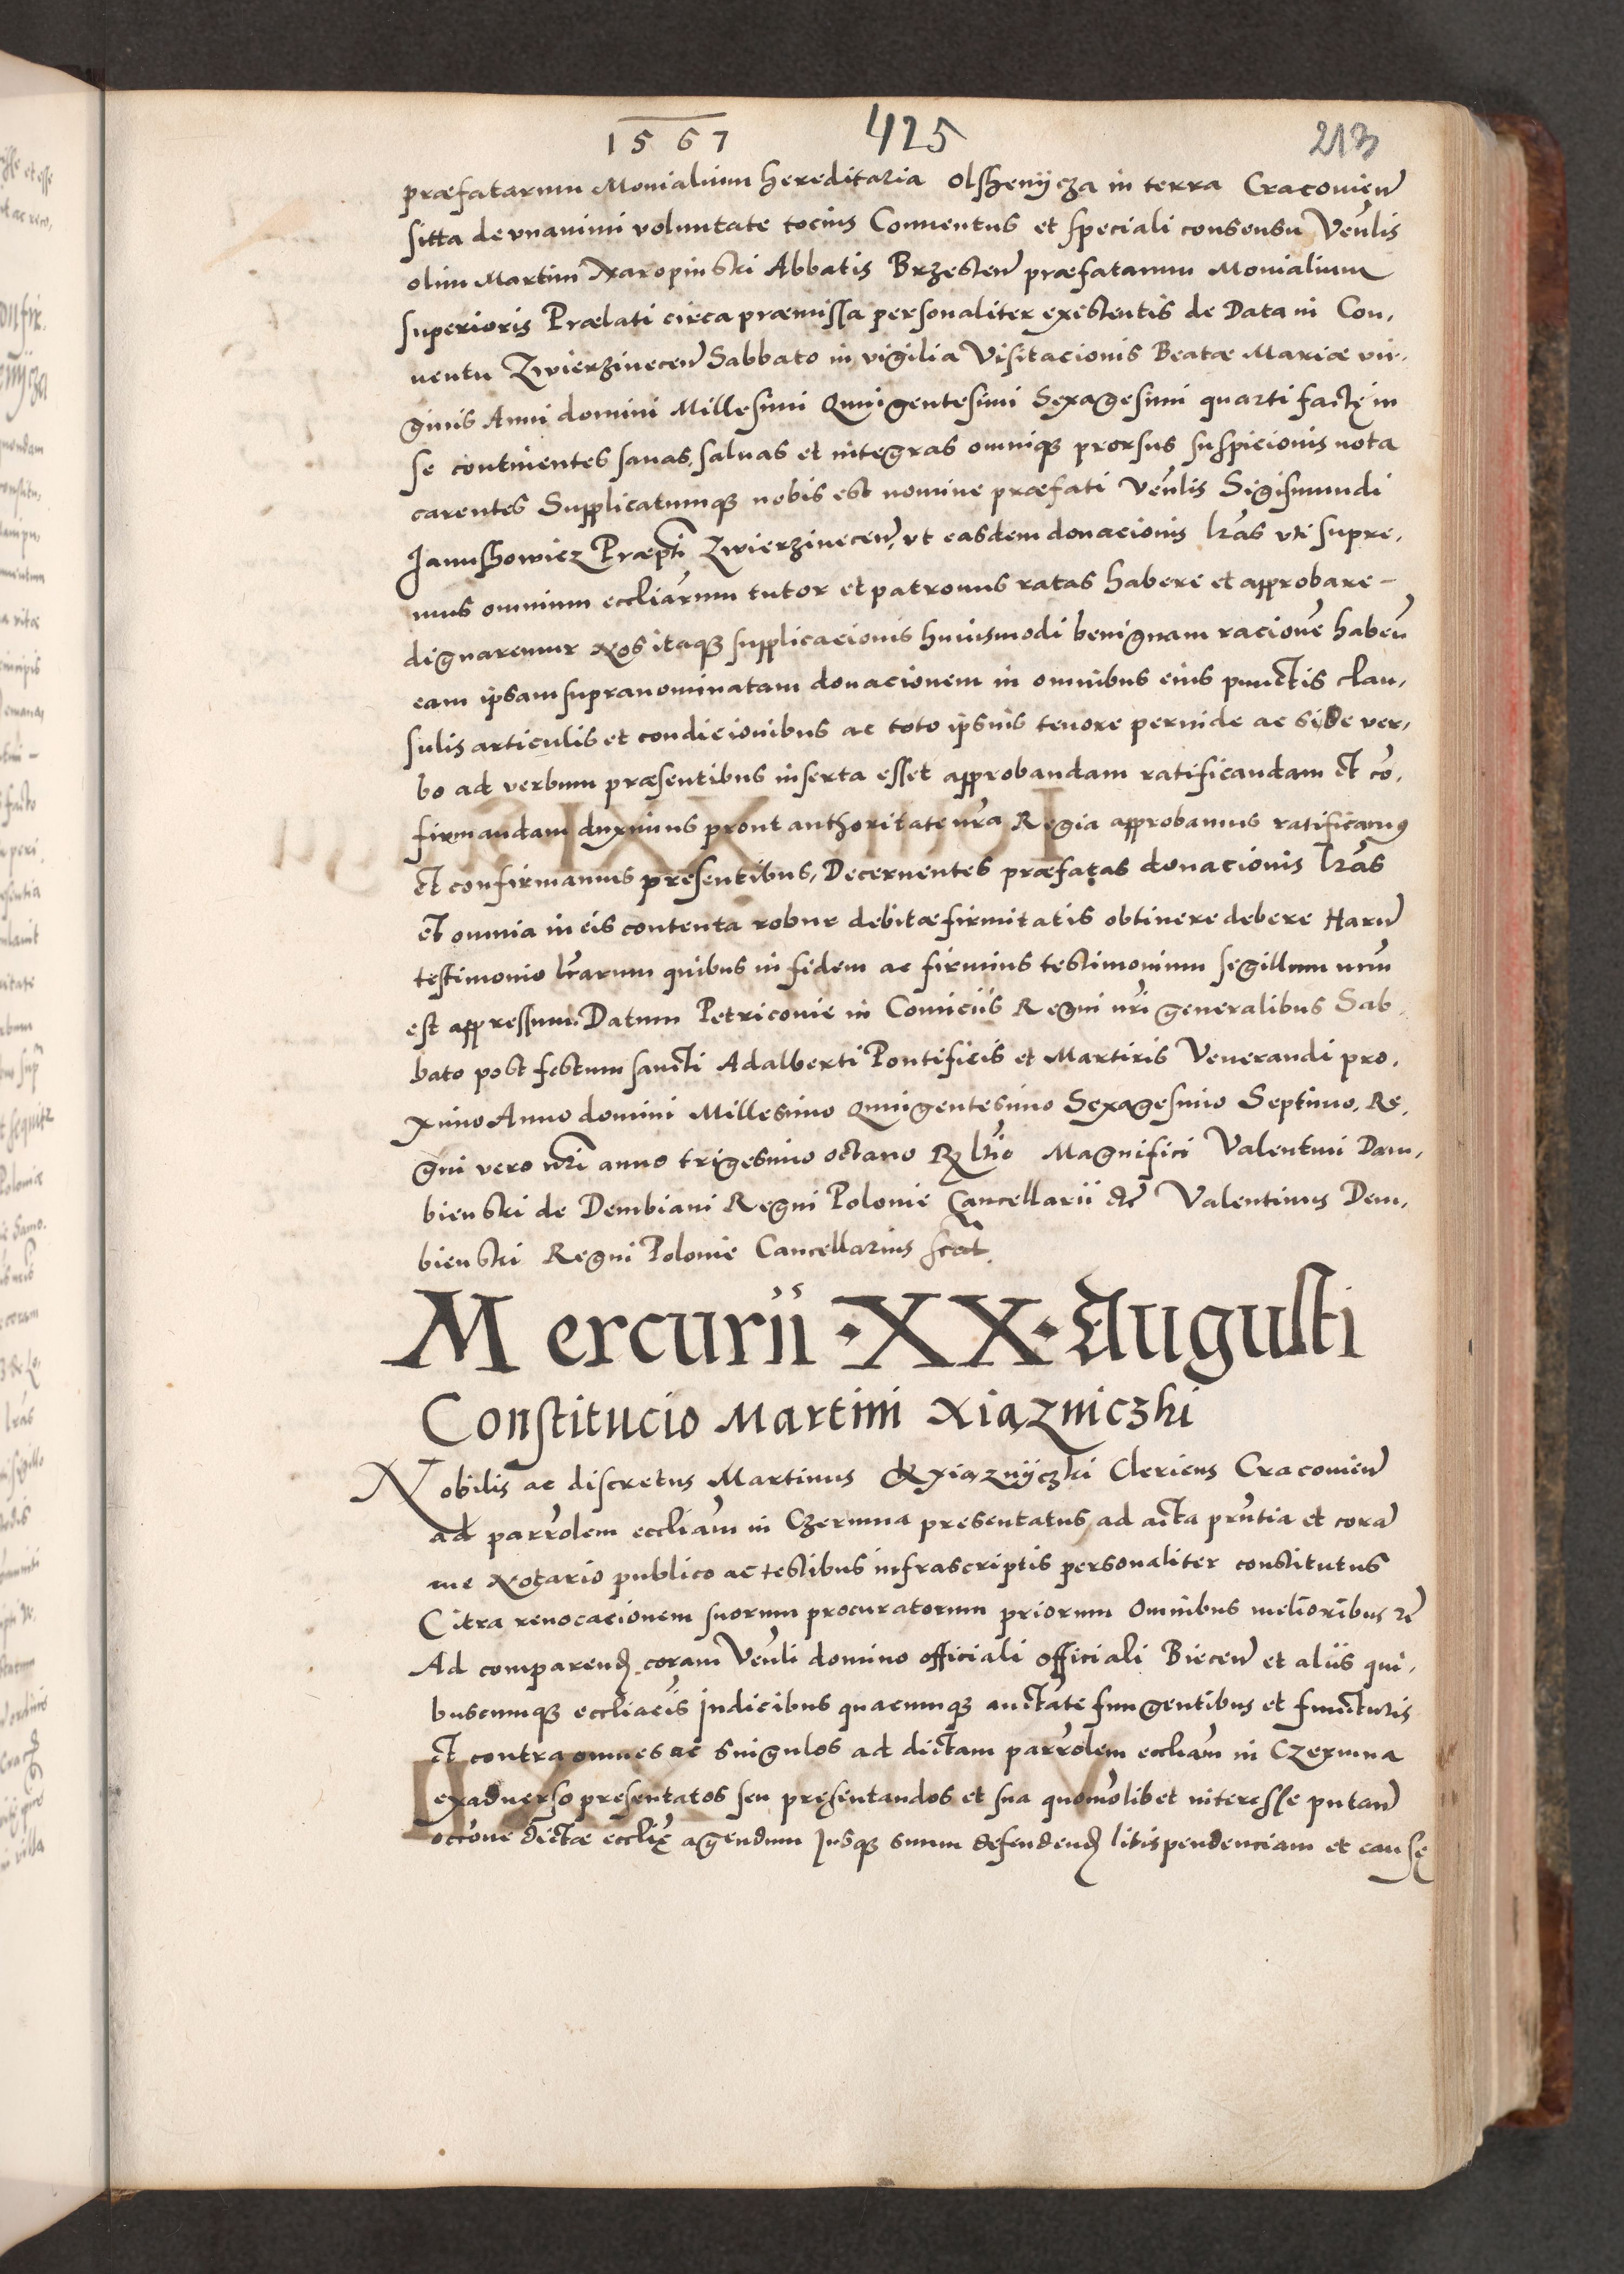 1567 425 213
præfatarum Monialium hereditaria Olshenÿcza in terra Cracovien̄
sitta de vnanimi voluntate tocius Conuentus et speciali consensu Ven̄lis
olim Martini Naropinski Abbatis Brzesten̄ præfatarum Monialium
superioris Prælati circa præmissa personaliter existentis de Data in Con,
uentu Zwierzinecen̄ Sabbato in vigilia Visitacionis Beatæ Mariæ vir,
ginis Anni domini Millesimi Quingentesimi Sexagesimi quarti factę in
se continentes sanas, saluas et integras omniq₃ prorsus suspicionis nota
carentes Supplicatumq₃ nobis est nomine præfati Ven̄lis Sigismundi
Janushowicz Præpti Zwierzinecen̄, vt easdem donacionis lr̄as vti supre,
mus omnium eccliārum tutor et patronus ratas habere et approbare –
dignaremur Nos itaq₃ supplicacionis huiusmodi benignam racionē habeñ
eam ipsam supranominatam donacionem in omnibus eius punctis clau,
sulis articulis et condicionibus ac toto ipsius tenore perinde ac si de ver,
bo ad verbum præsentibus inserta esset approbandam ratificandam et cō,
firmandam duximus prout authoritate nr̄a Regia approbamus ratificamꝰ
et confirmamus presentibus, Decernentes præfatas donacionis lr̄as
et omnia in eis contenta robur debitæ firmitatis obtinere debere Harū
testimonio lr̄arum quibus in fidem ac firmius testimonium sigillum nr̄m
est appressum. Datum Petricovie in Comiciis Regni nr̄i generalibus Sab,
bato post festum sancti Adalberti Pontificis et Martiris Venerandi pro,
ximo Anno domini Millesimo Quingentesimo Sexagesimo Septimo, Re,
gni vero nr̄i anno trigesimo octavo Rełtio Magnifici Valentini Dam,
bienski de Dembiani Regni Polonie Cancellarii etc̄ Valentinus Dem,
bienski Regni Polonie Cancellarius scat.
Mercurii ·XX· Augusti
Constitucio Martini Xiązniczki
Nobilis ac discretus Martinus Xiąznÿczki Clericus Cracovien̄
ad parrolem eccliām in Czermna presentatus, ad acta prn̄tia et corā
me Notario publico ac testibus infrascriptis personaliter constitutus
Citra reuocacionem suorum procuratorum priorum Omnibus meliōribus etc̄
Ad comparend̨ coram Ven̄li domino officiali officiali Biecen̄ et aliis qui,
buscumq₃ eccliācis Judicibus quacumq₃ auctāte fungentibus et functuris
et contra omnes ac singulos ad dictam parrōlem eccliām in Czermna
exaduerso presentatos seu pręsentandos et sua quomōlibet interesse putan̄
occōne dictæ ecclię agendum Jusq₃ suum defendend̨ litispendenciam et causę